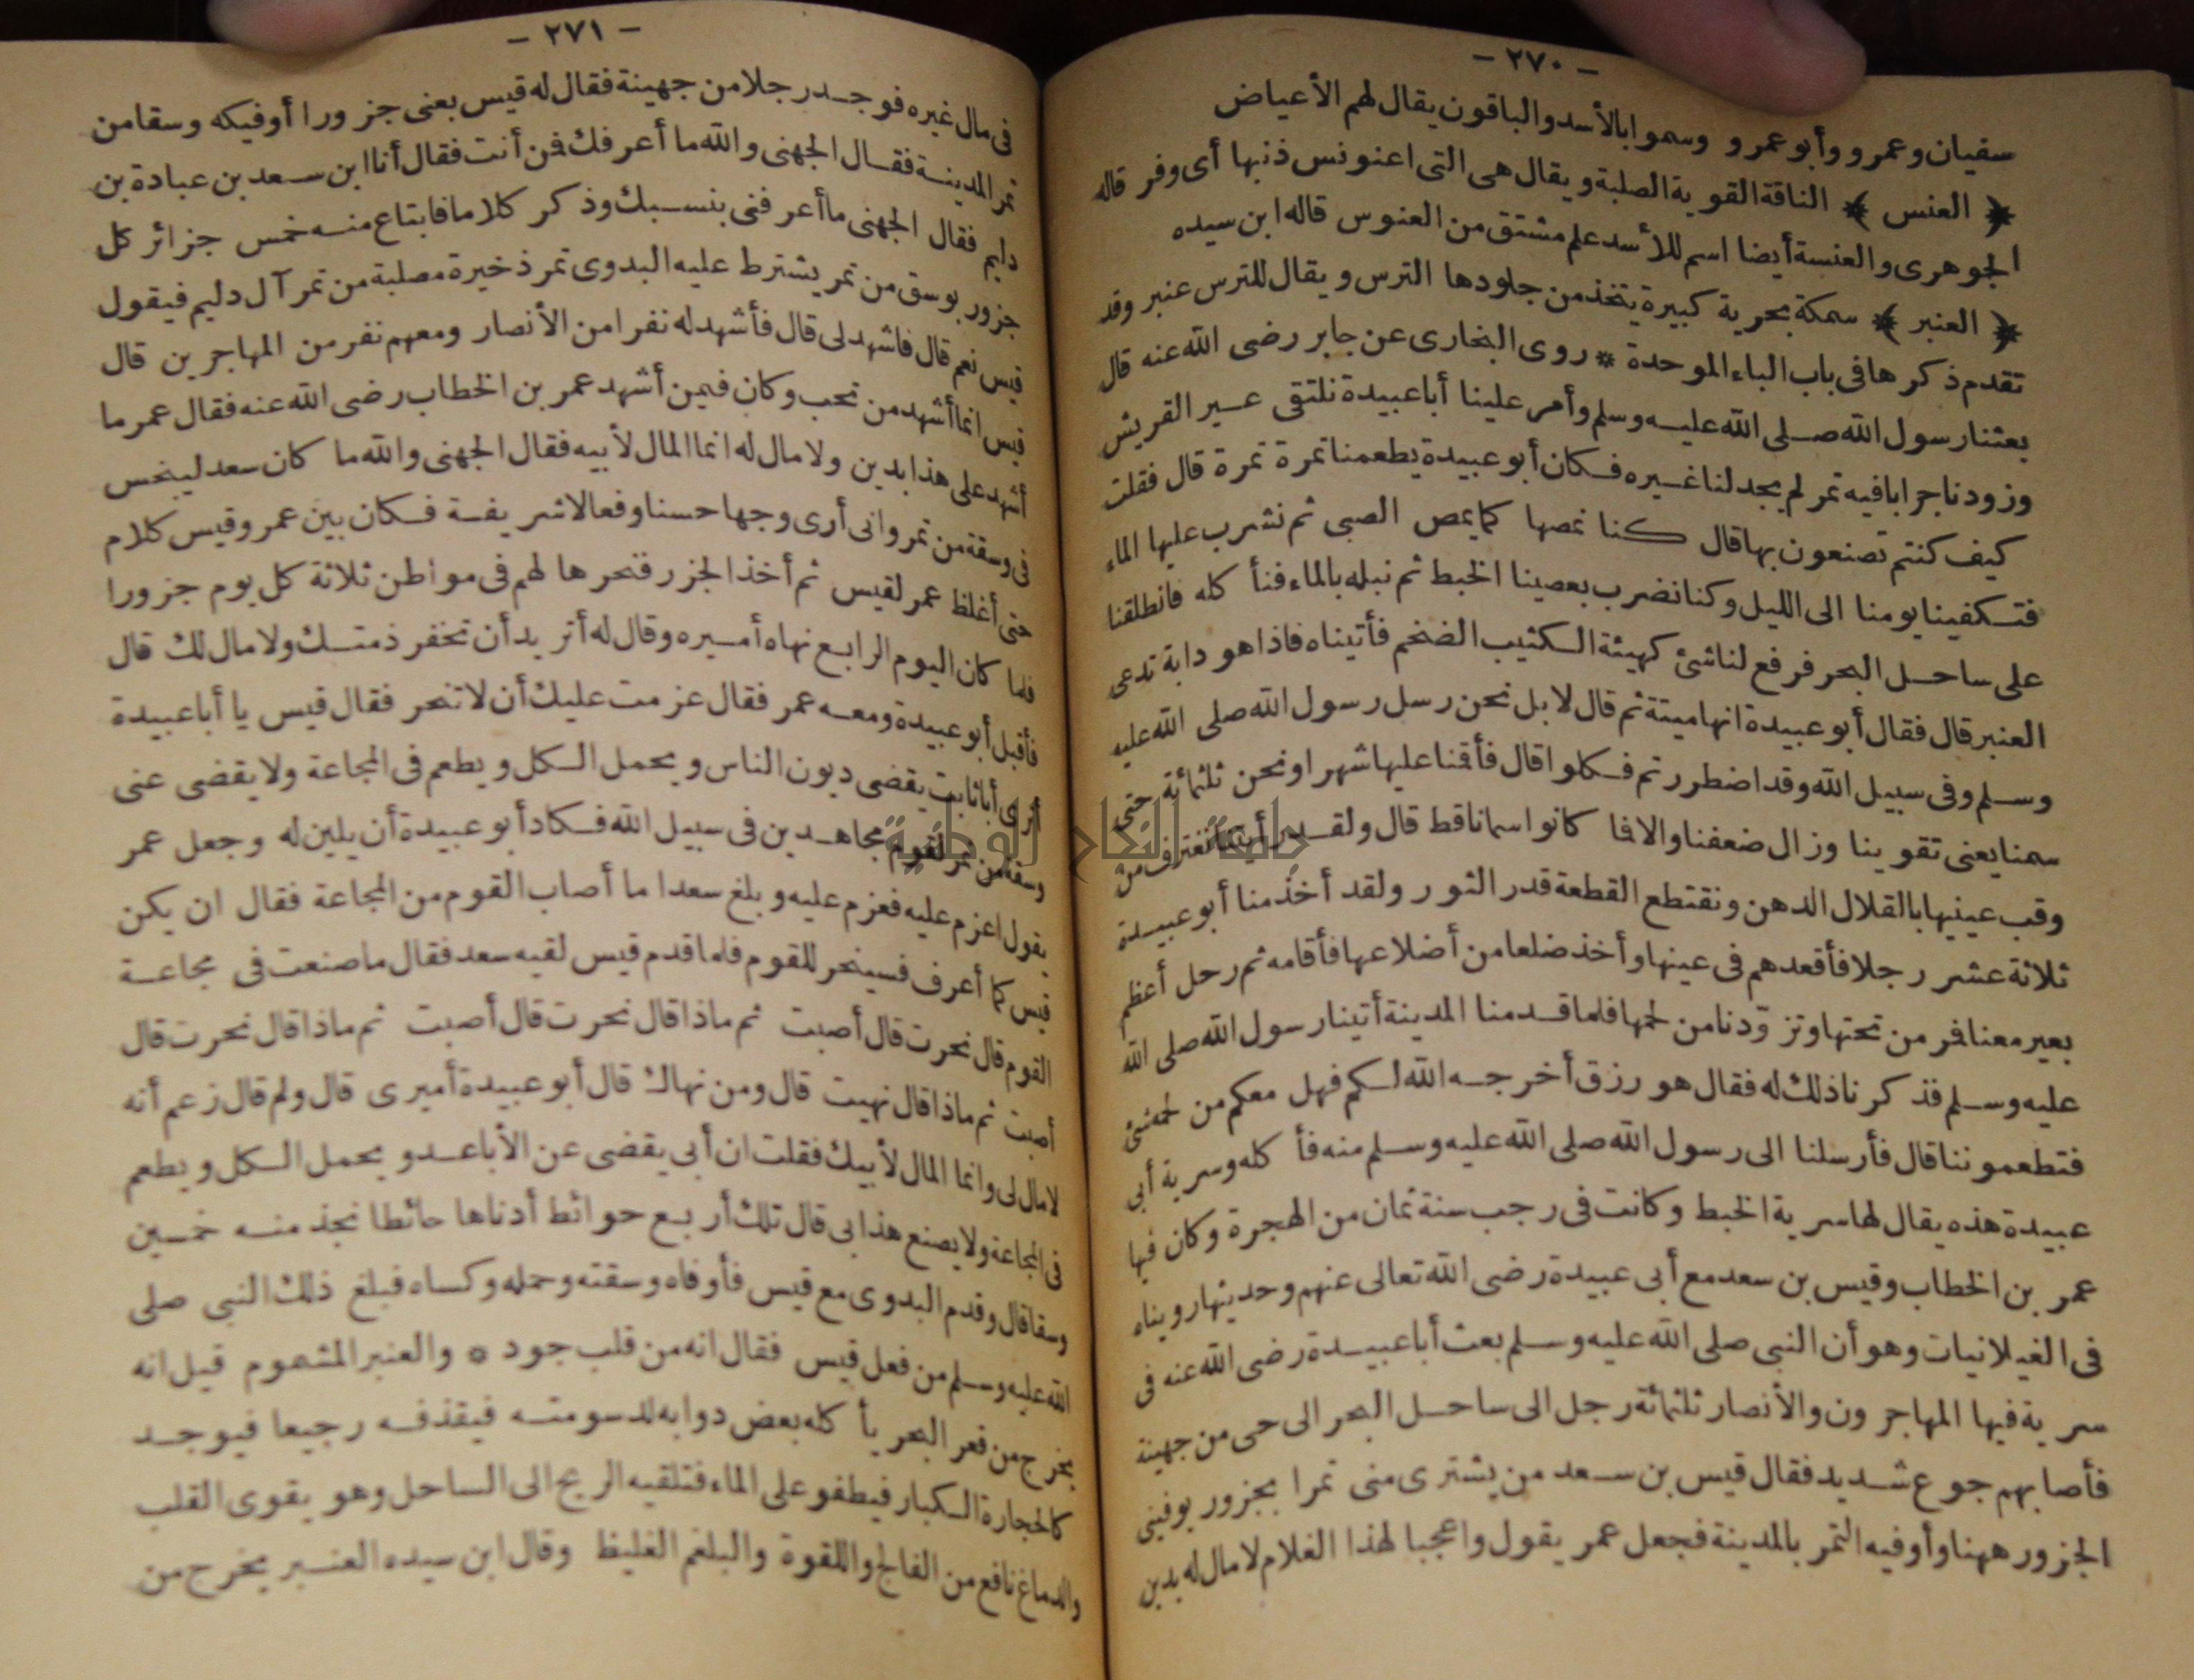 - ٢٧٠ -
سفيان وعمرو وأبو عمرو وسموا بالأسد والباقون يقال لهم الأعياض
﴿ العنس ﴾ الناقة القوية الصلبة ويقال هى التى اعنونس ذنبها أى وفر قاله
الجوهرى والعنسة أيضا اسم للأسد علم مشتق من العنوس قاله ابن سيده
﴿ العنبر ﴾ سمكة بحرية كبيرة يتخذ من جلودها الترس ويقال للترس عنبر وقد
تقدم ذكرها فى باب الباء الموحدة * روى البخارى عن جابر رضى الله عنه قال
بعثنا رسول الله صلى الله عليه وسلم وأمر علينا أبا عبيدة نلتقى عير القريش
وزودنا جرابا فيه تمر لم يجد لنا غيره فكان أبو عبيدة يطعمنا تمرة تمرة قال فقلت
كيف كنتم تصنعون بها قال كنا نمصها كما يمص الصبى ثم نشرب عليها الماء
فتكفينا يومنا الى الليل وكنا نضرب بعصينا الخبط ثم نبله بالماء فنأكله فانطلقنا
على ساحل البحر فرفع لنا شئ كهيئة الكثيب الضخم فأتيناه فاذا هو دابة تدعى
العنبر قال فقال أبو عبيدة انها ميتة ثم قال لا بل نحن رسل رسول الله صلى الله عليه
وسلم وفى سبيل الله وقد اضطررتم فكلوا قال فأقمنا عليها شهرا ونحن ثلثمائة حتى
سمنا يعنى تقوينا وزال ضعفنا والا فما كانوا سمانا قط قال ولقد رأيتنا نغترف من
وقب عينيها بالقلال الدهن ونقتطع القطعة قدر الثور ولقد أخذ منا أبو عبيدة
ثلاثة عشر رجلا فأقعدهم فى عينها وأخذ ضلعا من أضلاعها فأقامه ثم رحل أعظم
بعير معنا فمر من تحتها وتزوّدنا من لحمها فلما قدمنا المدينة أتينا رسول الله صلى الله
عليه وسلم فذكرنا ذلك له فقال هو رزق أخرجه الله لكم فهل معكم من لحمه شئ
فتطعموننا قال فأرسلنا الى رسول الله صلى الله عليه وسلم منه فأكله وسرية أبى
عبيدة هذه يقال لها سرية الخبط وكانت فى رجب سنة ثمان من الهجرة وكان فيها
عمر بن الخطاب وقيس بن سعد مع أبى عبيدة رضى الله تعالى عنهم وحديثها رويناه
فى الغيلانيات وهو أن النبى صلى الله عليه وسلم بعث أبا عبيدة رضى الله عنه فى
سرية فيها المهاجرون والأنصار ثلثمائة رجل الى ساحل البحر الى حى من جهينة
فأصابهم جوع شديد فقال قيس بن سعد من يشترى منى تمرا بجزور يوفينى
الجزور ههنا وأوفيه التمر بالمدينة فجعل عمر يقول واعجبا لهذا الغلام لا مال له يدين
- ٢٧١ -
فى مال غيره فوجد رجلا من جهينة فقال له قيس بعنى جزورا أوفيكه وسقا من
تمر المدينة فقال الجهنى والله ما أعرفك فمن أنت فقال أنا ابن سعد بن عبادة بن
دليم فقال الجهنى ما أعرفنى بنسبك وذكر كلاما فابتاع منه خمس جزائر كل
جزور بوسق من تمر يشترط عليه البدوى تمر ذخيرة مصلبة من تمر آل دليم فيقول
قيس نعم قال فاشهد لى قال فأشهد له نفرا من الأنصار ومعهم نفر من المهاجرين قال
قيس انما أشهد من تحب وكان فيمن أشهد عمر بن الخطاب رضى الله عنه فقال عمر ما
أشهد على هذا بدين ولا مال له انما المال لأبيه فقال الجهنى والله ما كان سعد ليبخس
فى وسقة من تمر وانى أرى وجها حسنا وفعالا شريفة فكان بين عمر وقيس كلام
حتى أغلظ عمر لقيس ثم أخذ الجزر فنحرها لهم فى مواطن ثلاثة كل يوم جزورا
فلما كان اليوم الرابع نهاه أميره وقال له أتريد أن تخفر ذمتك ولا مال لك قال
فأقبل أبو عبيدة ومعه عمر فقال عزمت عليك أن لا تنحر فقال قيس يا أبا عبيدة
أترى أبا ثابت يقضى ديون الناس ويحمل الكل ويطعم فى المجاعة ولا يقضى عنى
وسقة من تمر لقوم مجاهدين فى سبيل الله فكاد أبو عبيدة أن يلين له وجعل عمر
يقول اعزم عليه فعزم عليه وبلغ سعدا ما أصاب القوم من المجاعة فقال ان يكن
قيس كما أعرف فسينحر للقوم فلما قدم قيس لقيه سعد فقال ما صنعت فى مجاعة
القوم قال نحرت قال أصبت ثم ماذا قال نحرت قال أصبت ثم ماذا قال نحرت قال
أصبت ثم ماذا قال نهيت قال ومن نهاك قال أبو عبيدة أميرى قال ولم قال زعم أنه
لا مال لى وانما المال لأبيك فقلت ان أبى يقضى عن الأباعد ويحمل الكل ويطعم
فى المجاعة ولا يصنع هذا بى قال تلك أربع حوائط أدناها حائطا نجذ منه خمسين
وسقا قال وقدم البدوى مع قيس فأوفاه وسقته وحمله وكساه فبلغ ذلك النبى صلى
الله عليه وسلم من فعل قيس فقال انه من قلب جود * والعنبر المشموم قيل انه
يخرج من قعر البحر يأكله بعض دوابه لدسومته فيقذفه رجيعا فيوجد
كالحجارة الكبار فيطفو على الماء فتلقيه الريح الى الساحل وهو يقوى القلب
والدماغ نافع من الفالج واللقوة والبلغم الغليظ وقال ابن سيده العنبر يخرج من
جامعة النجاح الوطنية